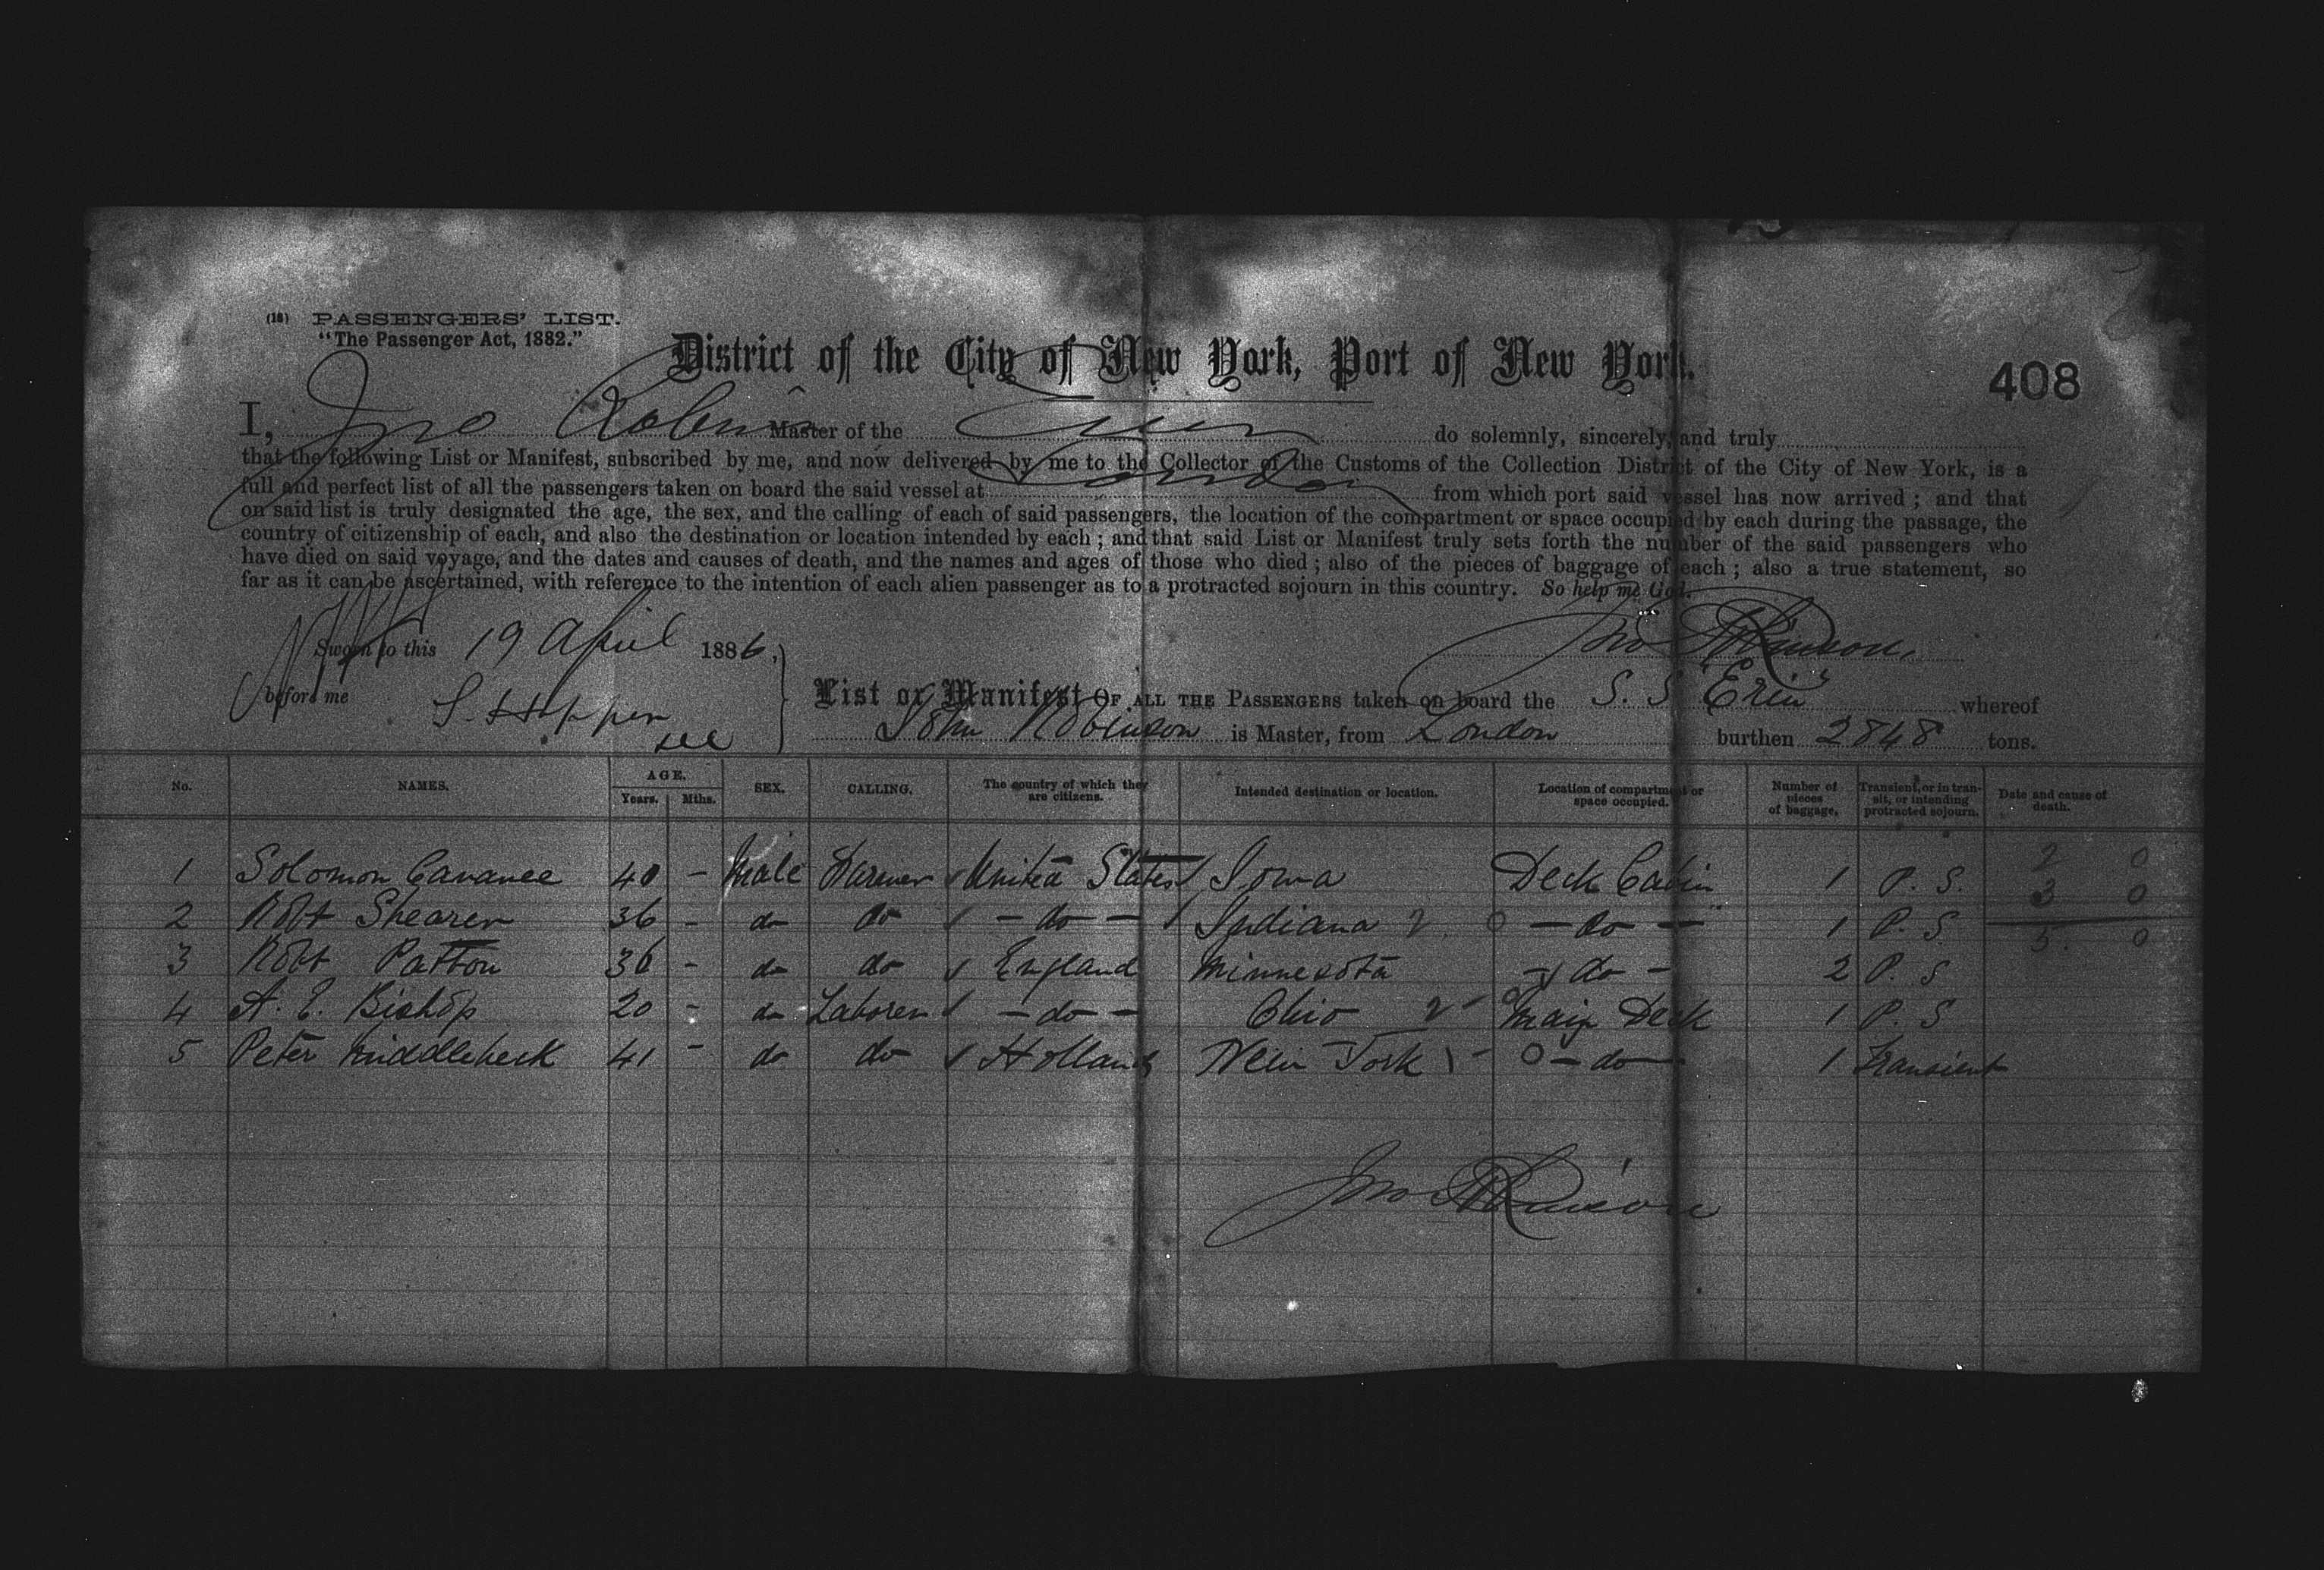 (18) PASSENGERS' LIST.
"The Passenger Act, 1882."
District of the City of New York, Port of New York.
408
I, Jno Robinson Master of the Erin do solemnly, sincerely, and truly
that the following List or Manifest, subscribed by me, and now delivered by me to the Collector of the Customs of the Collection District of the City of New York, is a
full and perfect list of all the passengers taken on board the said vessel at London from which port said vessel has now arrived; and that
on said list is truly designated the age, the sex, and the calling of each of said passengers, the location of the compartment or space occupied by each during the passage, the
country of citizenship of each, and also the destination or location intended by each; and that said List or Manifest truly sets forth the number of the said passengers who
have died on said voyage, and the dates and causes of death, and the names and ages of those who died; also of the pieces of baggage of each; also a true statement, so
far as it can be ascertained, with reference to the intention of each alien passenger as to a protracted sojourn in this country. So help me God.
Sworn to this 19 April 1886,
Jno Robinson
before me
List or Manifest OF ALL THE PASSENGERS taken on board the S. S "Erin" whereof
John Robinson is Master, from London burthen 2848 tons.
No. NAMES. AGE. Years. Mths. SEX. CALLING. The country of which they are citizens. Intended destination or location. Location of compartment or space occupied. Number of pieces of baggage. Transient, or in transit, or intending protracted sojourn. Date and cause of death.
1 Solomon Cavanee 40 - Male Farmer United States Iowa Deck Cabin 1 P. S. 2 0
2 Robt Shearer 36 - do do - do - Indiana 2 0 - do - 1 P. S. 3 0
3 Robt Patton 36 - do do England Minnesota - do - 2 P. S 5. 0
4 A. E. Bishop 20 - do Laborer - do - Ohio 2 - Main Deck 1 P. S
5 Peter Middlebeek 41 - do do Holland New York 1 - 0 - do - 1 Transient
Jno Robinson